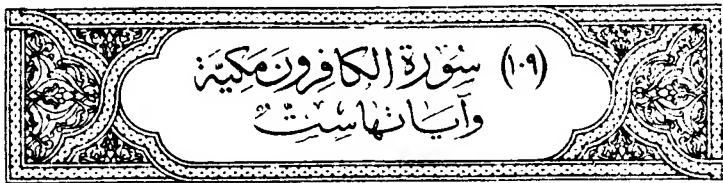 (١٠٩) سُورَة الكافِرونَ مَكيَّة
وَآيَاتهَا سِتٌّ